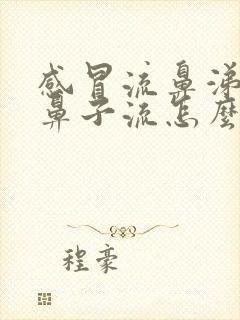 感冒流鼻涕
鼻子流怎麼
程豪